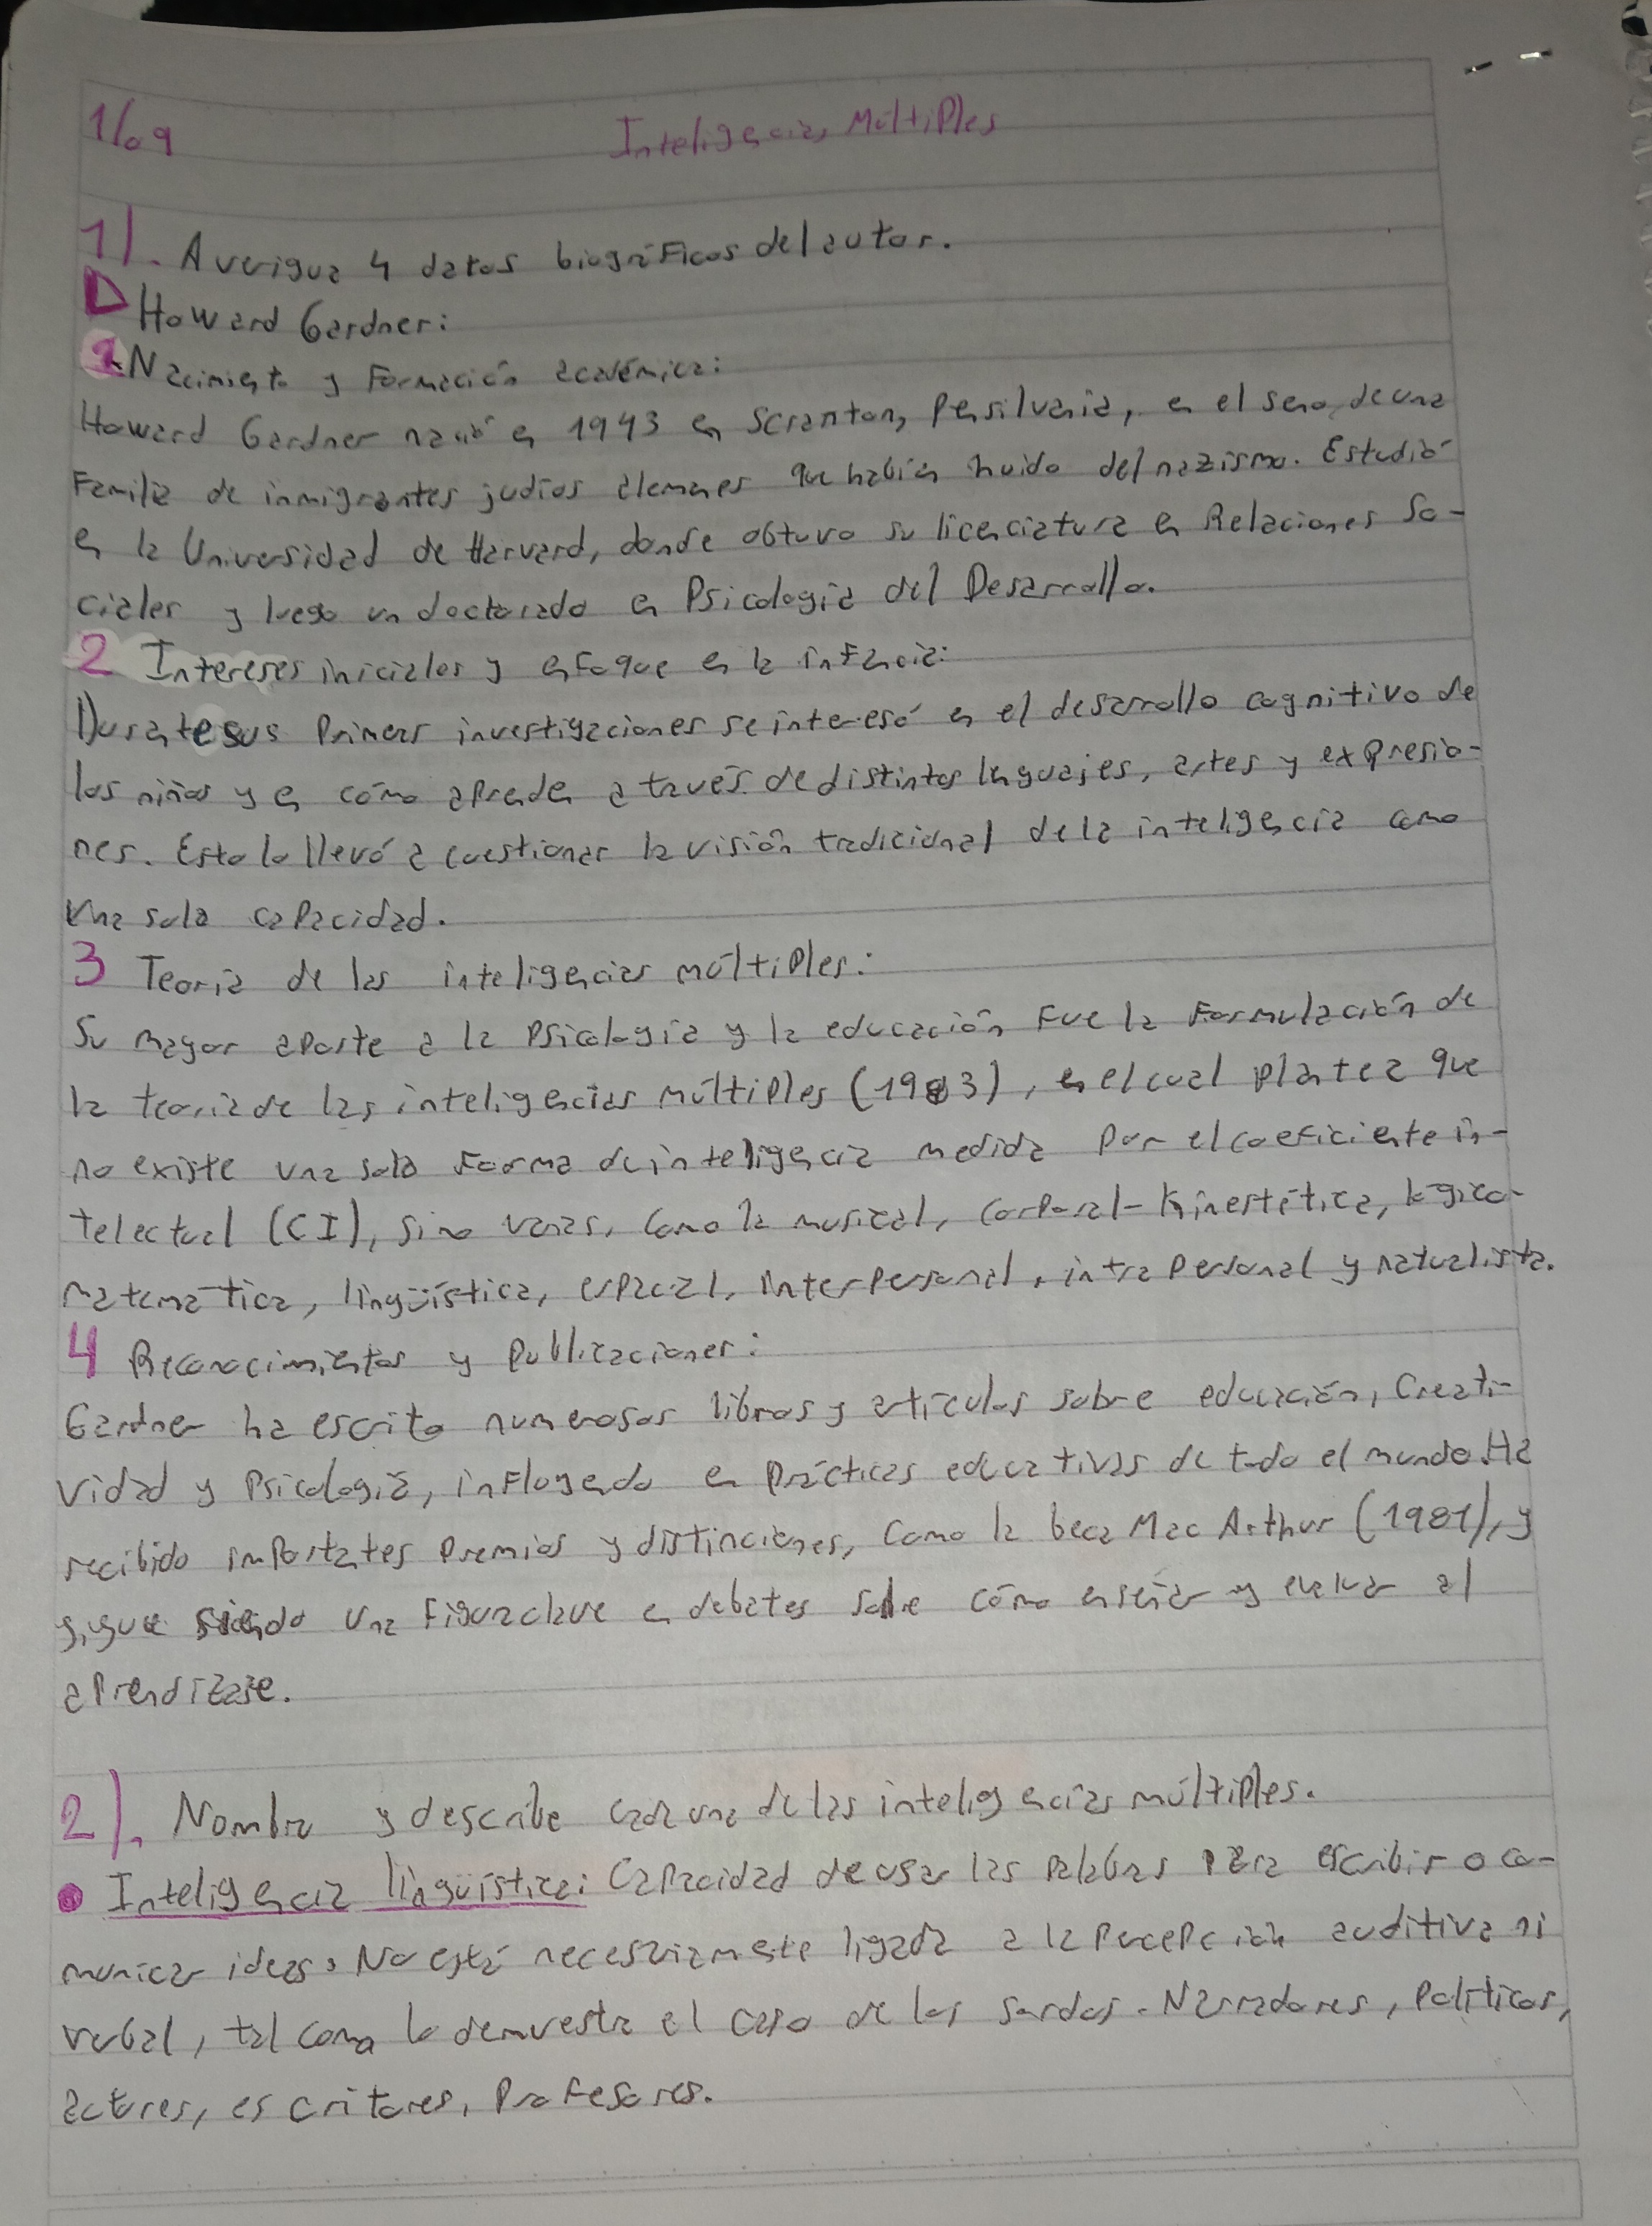 1/09
Inteligencias Múltiples
1). Averigua 4 datos biográficos del autor.
Howard Gardner:
1 Nacimiento y Formación académica:
Howard Gardner nació en 1943 en Scranton, Pensilvania, en el seno de una
Familia de inmigrantes judíos alemanes que habían huido del nazismo. Estudió
en la Universidad de Harvard, donde obtuvo su licenciatura en Relaciones So-
ciales y luego un doctorado en Psicología del Desarrollo.
2 Intereses iniciales y enfoque en la infancia:
Durante sus Primeras investigaciones se interesó en el desarrollo cognitivo de
los niños y en cómo aprenden a través de distintos lenguajes, artes y expresio-
nes. Esto lo llevó a cuestionar la visión tradicional de la inteligencia como
una sola capacidad.
3 Teoría de las inteligencias múltiples:
Su mayor aporte a la Psicología y la educación fue la Formulación de
la teoría de las inteligencias múltiples (1983), en el cual plantea que
no existe una sola Forma de inteligencia medida por el coeficiente in-
telectual (CI), sino varias, como la musical, corporal-kinestética, lógico-
matemática, lingüística, espacial, interpersonal, intrapersonal y naturalista.
4 Reconocimientos y Publicaciones:
Gardner ha escrito numerosos libros y artículos sobre educación, Creati-
vidad y Psicología, influyendo en prácticas educativas de todo el mundo. Ha
recibido importantes premios y distinciones, Como la beca MacArthur (1981), y
sigue siendo una Figura clave en debates sobre cómo enseñar y evaluar el
aprendizaje.
2). Nombra y describe cada una de las inteligencias múltiples.
Inteligencia lingüística: Capacidad de usar las palabras para escribir o co-
municar ideas. No está necesariamente ligada a la percepción auditiva ni
verbal, tal como lo demuestra el caso de los sordos. Narradores, Políticos,
actores, escritores, Profesores.